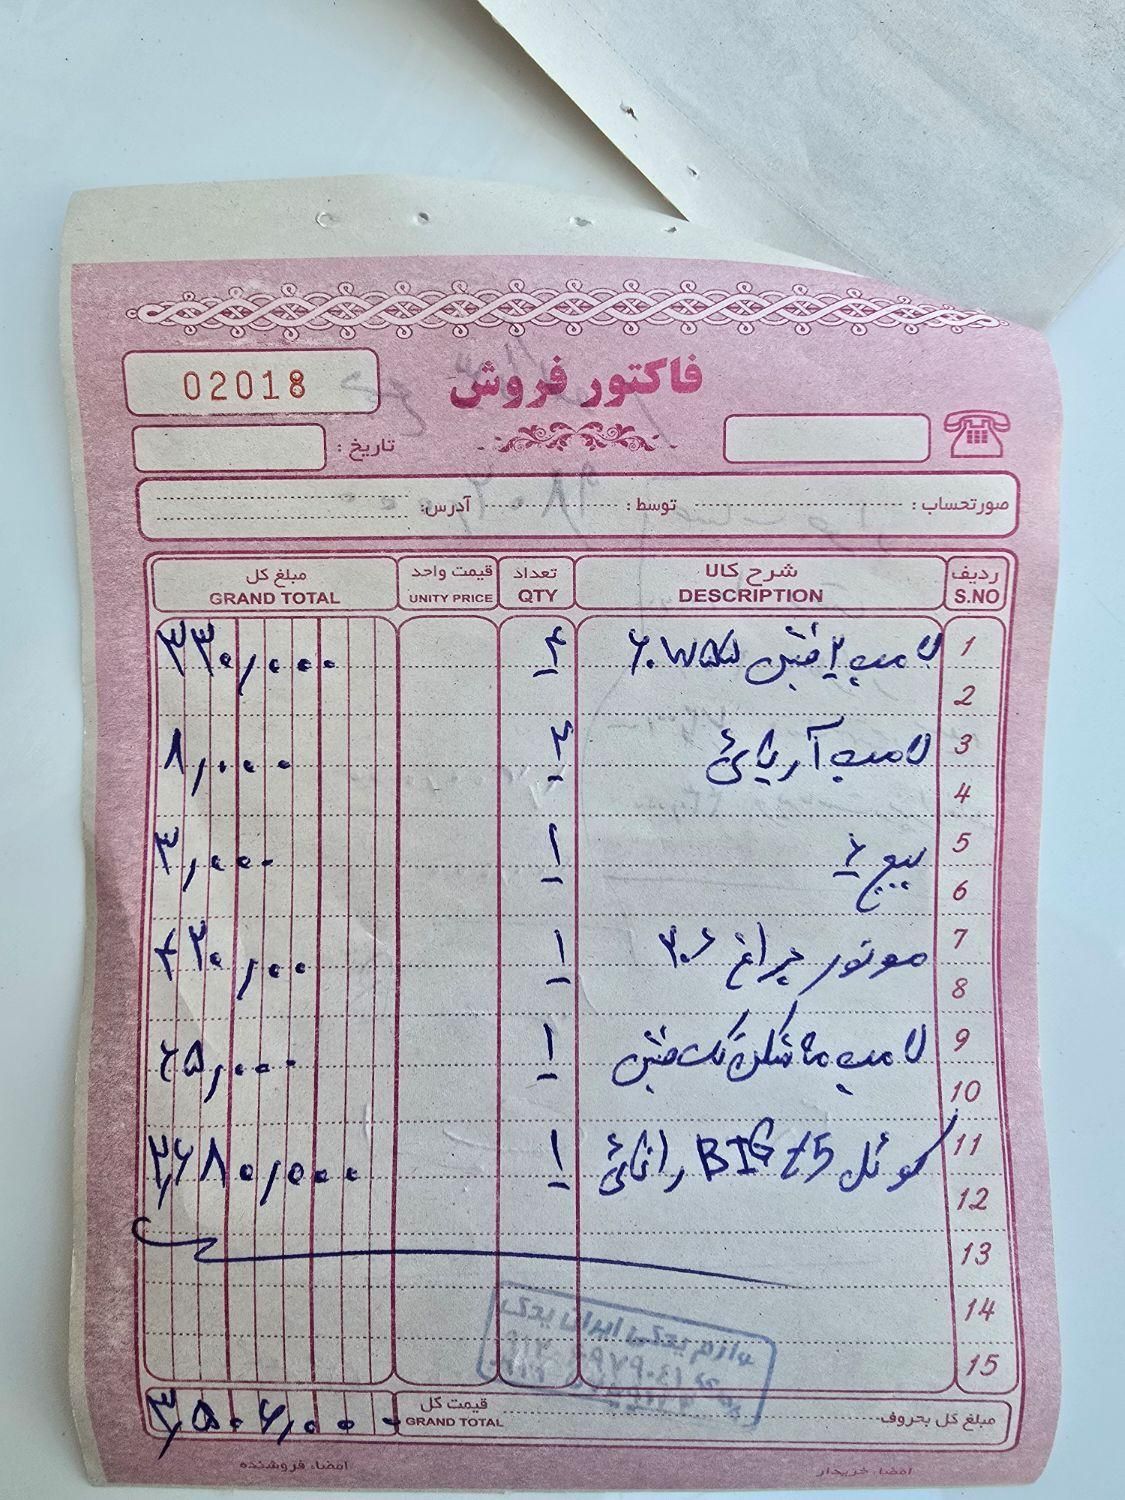 فاکتور فروش
02018
تاریخ :
صورتحساب : توسط : آدرس:
ردیف شرح کالا تعداد قیمت واحد مبلغ کل
S.NO DESCRIPTION QTY UNITY PRICE GRAND TOTAL
1 لامپ ۲ فیش ۴ ۳۳۰,۰۰۰
2
3 لامپ آریائی ۲ ۸,۰۰۰
4
5 پیچ ۶ ۱ ۳,۰۰۰
6
7 موتور چراغ ۲۰۶ ۱ ۴۲۰,۰۰۰
8
9 لامپ مه شکن تک فیش ۱ ۶۵,۰۰۰
10
11 کوئل BIG t5 ۱ ۲,۶۸۰,۰۰۰
12
13
14
15
مبلغ کل بحروف قیمت کل ۳,۵۰۶,۰۰۰
GRAND TOTAL
امضاء خریدار امضاء فروشنده